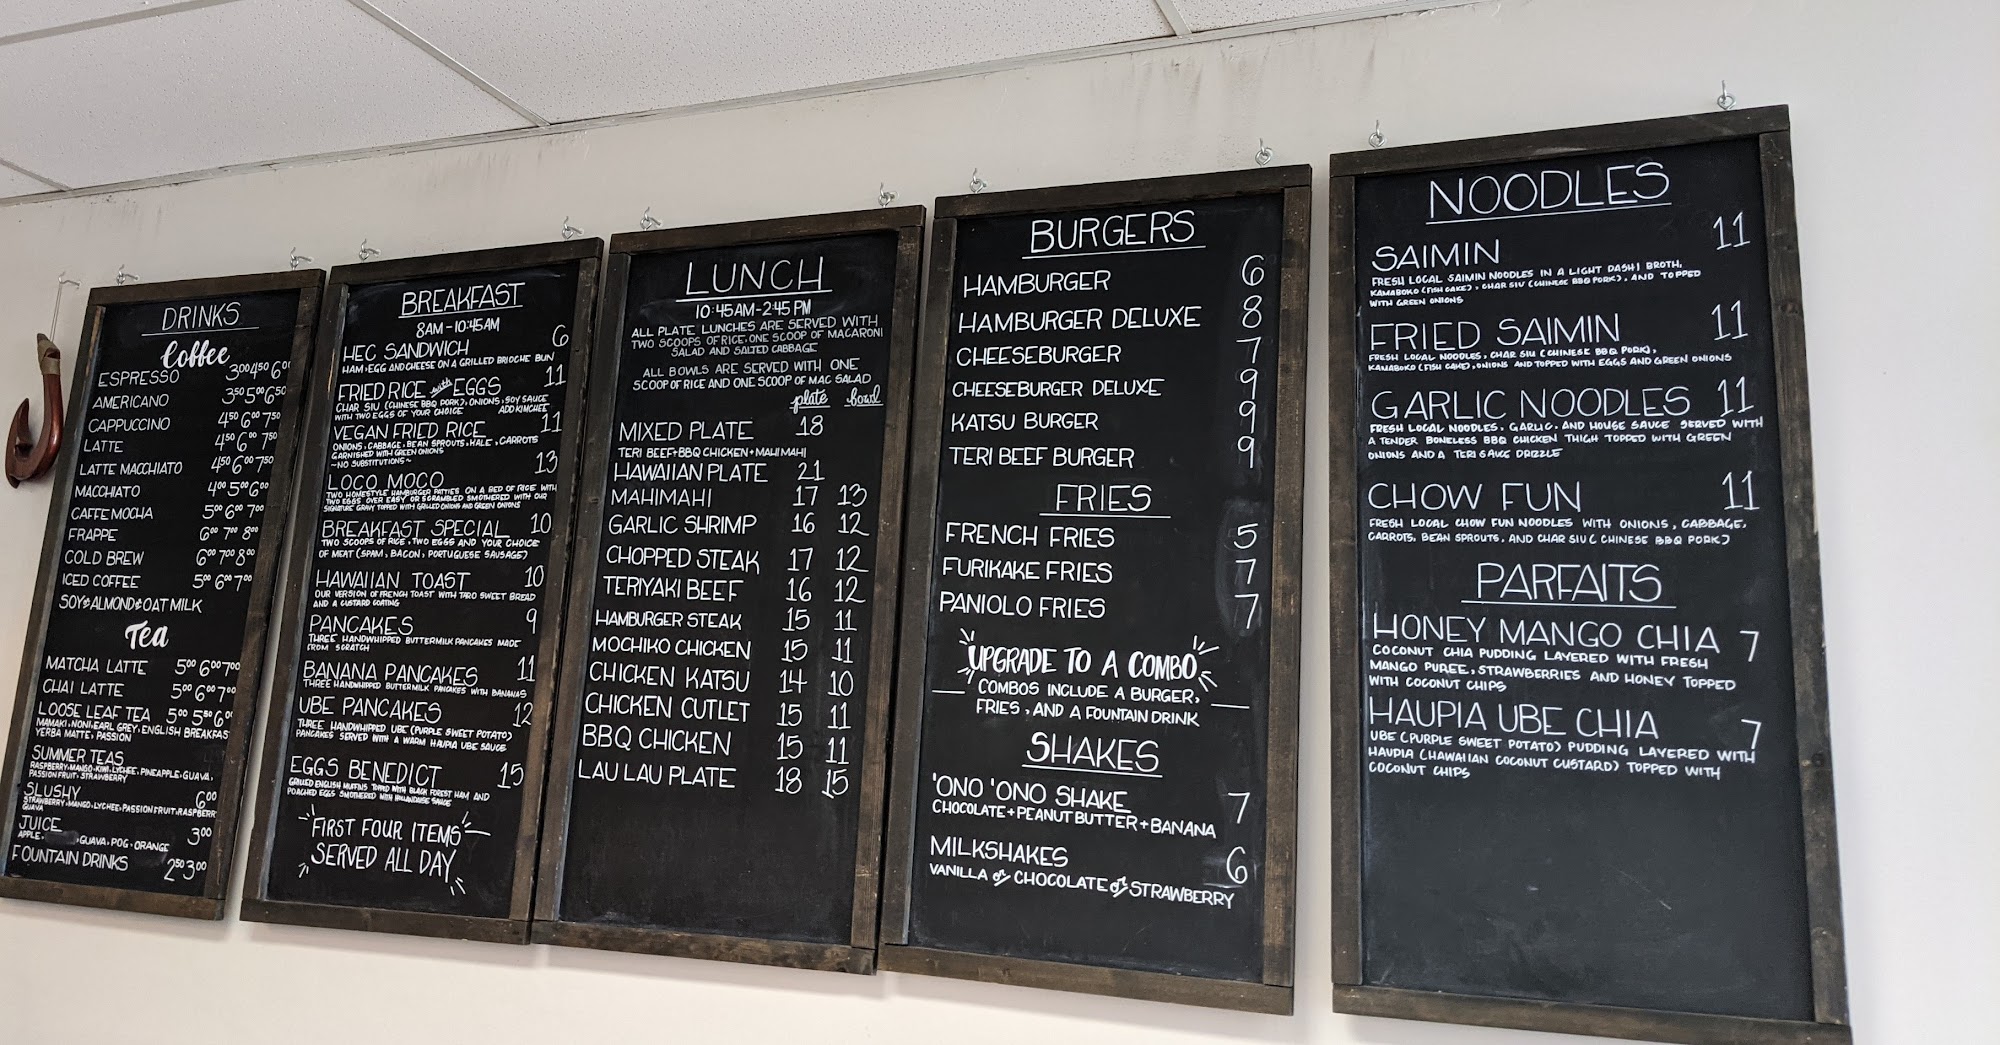 DRINKS
Coffee
ESPRESSO 3.00 4.50 6.00
AMERICANO 3.50 5.00 6.50
CAPPUCCINO 4.50 6.00 7.50
LATTE 4.50 6.00 7.50
LATTE MACCHIATO 4.50 6.00 7.50
MACCHIATO 4.00 5.00 6.00
CAFFE MOCHA 5.00 6.00 7.00
FRAPPE 6.00 7.00 8.00
COLD BREW 6.00 7.00 8.00
ICED COFFEE 5.00 6.00 7.00
SOY & ALMOND & OAT MILK
Tea
MATCHA LATTE 5.00 6.00 7.00
CHAI LATTE 5.00 6.00 7.00
LOOSE LEAF TEA 5.00 5.50 6.00
MAMAKI, NONI, EARL GREY, ENGLISH BREAKFAST
YERBA MATTE, PASSION
SUMMER TEAS
RASPBERRY, MANGO, KIWI, LYCHEE, PINEAPPLE, GUAVA,
PASSION FRUIT, STRAWBERRY
SLUSHY 6.00
STRAWBERRY, MANGO, LYCHEE, PASSION FRUIT, RASPBERRY
GUAVA
JUICE 3.00
APPLE, GUAVA, POG, ORANGE
FOUNTAIN DRINKS 2.50 3.00
BREAKFAST
8AM-10:45AM
HEC SANDWICH 6
HAM, EGG AND CHEESE ON A GRILLED BRIOCHE BUN
FRIED RICE with EGGS 11
CHAR SIU (CHINESE BBQ PORK), ONIONS, SOY SAUCE
WITH TWO EGGS OF YOUR CHOICE ADD KIMCHEE
VEGAN FRIED RICE 11
ONIONS, CABBAGE, BEAN SPROUTS, KALE, CARROTS
GARNISHED WITH GREEN ONIONS
~NO SUBSTITUTIONS~
LOCO MOCO 13
TWO HOMESTYLE HAMBURGER PATTIES ON A BED OF RICE WITH
TWO EGGS OVER EASY OR SCRAMBLED SMOTHERED WITH OUR
SIGNATURE GRAVY TOPPED WITH GRILLED ONIONS AND GREEN ONIONS
BREAKFAST SPECIAL 10
TWO SCOOPS OF RICE, TWO EGGS AND YOUR CHOICE
OF MEAT (SPAM, BACON, PORTUGUESE SAUSAGE)
HAWAIIAN TOAST 10
OUR VERSION OF FRENCH TOAST WITH TARO SWEET BREAD
AND A CUSTARD COATING
PANCAKES 9
THREE HANDWHIPPED BUTTERMILK PANCAKES MADE
FROM SCRATCH
BANANA PANCAKES 11
THREE HANDWHIPPED BUTTERMILK PANCAKES WITH BANANAS
UBE PANCAKES 12
THREE HANDWHIPPED UBE (PURPLE SWEET POTATO)
PANCAKES SERVED WITH A WARM HAUPIA UBE SAUCE
EGGS BENEDICT 15
GRILLED ENGLISH MUFFINS TOPPED WITH BLACK FOREST HAM AND
POACHED EGGS SMOTHERED WITH HOLLANDAISE SAUCE
FIRST FOUR ITEMS
SERVED ALL DAY
LUNCH
10:45AM-2:45 PM
ALL PLATE LUNCHES ARE SERVED WITH
TWO SCOOPS OF RICE, ONE SCOOP OF MACARONI
SALAD AND SALTED CABBAGE
ALL BOWLS ARE SERVED WITH ONE
SCOOP OF RICE AND ONE SCOOP OF MAC SALAD
plate bowl
MIXED PLATE 18
TERI BEEF+BBQ CHICKEN+MAHIMAHI
HAWAIIAN PLATE 21
MAHIMAHI 17 13
GARLIC SHRIMP 16 12
CHOPPED STEAK 17 12
TERIYAKI BEEF 16 12
HAMBURGER STEAK 15 11
MOCHIKO CHICKEN 15 11
CHICKEN KATSU 14 10
CHICKEN CUTLET 15 11
BBQ CHICKEN 15 11
LAU LAU PLATE 18 15
BURGERS
HAMBURGER 6
HAMBURGER DELUXE 8
CHEESEBURGER 7
CHEESEBURGER DELUXE 9
KATSU BURGER 9
TERI BEEF BURGER 9
FRIES
FRENCH FRIES 5
FURIKAKE FRIES 7
PANIOLO FRIES 7
UPGRADE TO A COMBO
COMBOS INCLUDE A BURGER,
FRIES, AND A FOUNTAIN DRINK
SHAKES
'ONO 'ONO SHAKE 7
CHOCOLATE+PEANUT BUTTER+BANANA
MILKSHAKES 6
VANILLA or CHOCOLATE or STRAWBERRY
NOODLES
SAIMIN 11
FRESH LOCAL SAIMIN NOODLES IN A LIGHT DASHI BROTH,
KAMABOKO (FISH CAKE), CHAR SIU (CHINESE BBQ PORK), AND TOPPED
WITH GREEN ONIONS
FRIED SAIMIN 11
FRESH LOCAL NOODLES, CHAR SIU (CHINESE BBQ PORK),
KAMABOKO (FISH CAKE), ONIONS AND TOPPED WITH EGGS AND GREEN ONIONS
GARLIC NOODLES 11
FRESH LOCAL NOODLES, GARLIC, AND HOUSE SAUCE SERVED WITH
A TENDER BONELESS BBQ CHICKEN THIGH TOPPED WITH GREEN
ONIONS AND A TERI SAUCE DRIZZLE
CHOW FUN 11
FRESH LOCAL CHOW FUN NOODLES WITH ONIONS, CABBAGE,
CARROTS, BEAN SPROUTS, AND CHAR SIU (CHINESE BBQ PORK)
PARFAITS
HONEY MANGO CHIA 7
COCONUT CHIA PUDDING LAYERED WITH FRESH
MANGO PUREE, STRAWBERRIES AND HONEY TOPPED
WITH COCONUT CHIPS
HAUPIA UBE CHIA 7
UBE (PURPLE SWEET POTATO) PUDDING LAYERED WITH
HAUPIA (HAWAIIAN COCONUT CUSTARD) TOPPED WITH
COCONUT CHIPS